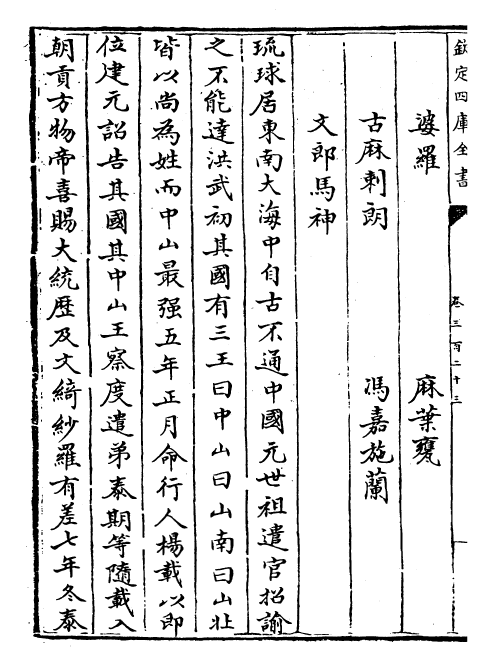 欽定四庫全書
卷三百二十三
婆羅　麻葉甕
古麻剌朗　馮嘉施蘭
文郎馬神
琉球居東南大海中自古不通中國元世祖遣官招諭
之不能達洪武初其國有三王曰中山曰山南曰山北
皆以尚為姓而中山最强五年正月命行人楊載以即
位建元詔告其國其中山王察度遣弟泰期等隨載入
朝貢方物帝喜賜大統歷及文綺紗羅有差七年冬泰